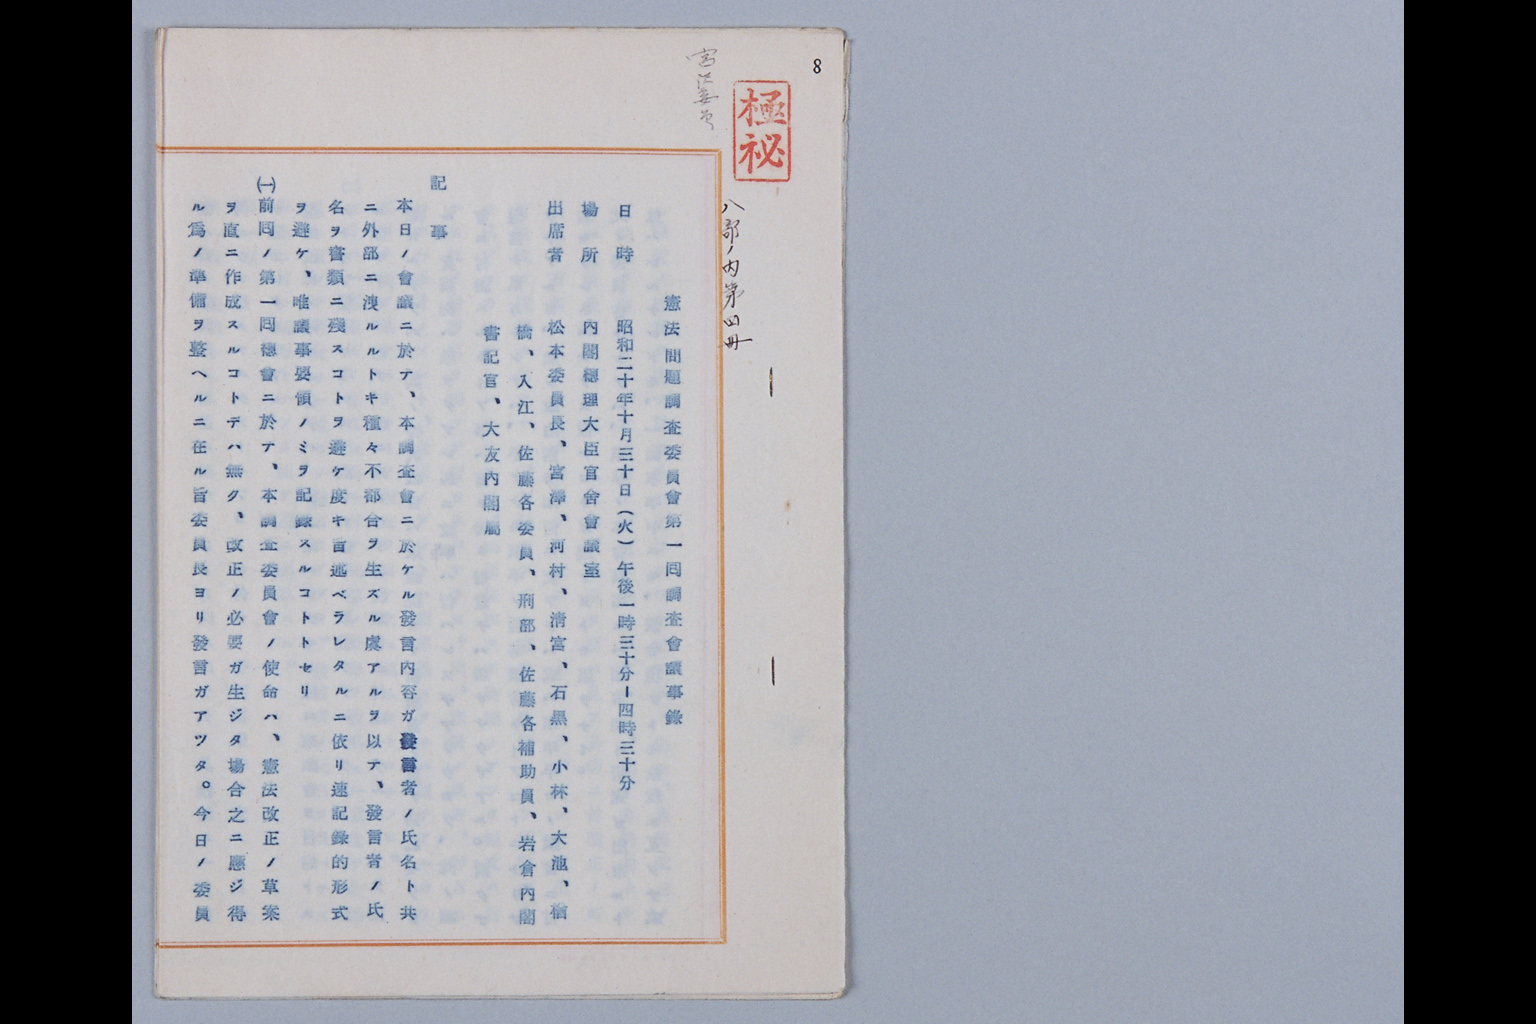 8
極秘
宮沢委員
八部ノ内第四冊
憲法問題調査委員會第一囘調査會議事錄
日時 昭和二十年十月三十日(火)午後一時三十分ー四時三十分
場所 內閣總理大臣官舍會議室
出席者 松本委員長、宮澤、河村、淸宮、石黑、小林、大池、楢
橋、入江、佐藤各委員、刑部、佐藤各補助員、岩倉內閣
書記官、大友內閣屬
記事
本日ノ會議ニ於テ、本調査會ニ於ケル發言內容ガ發言者ノ氏名ト共
ニ外部ニ洩ルルトキ種々不都合ヲ生ズル虞アルヲ以テ、發言者ノ氏
名ヲ書類ニ残スコトヲ避ケ度キ旨述ベラレタルニ依リ速記錄的形式
ヲ避ケ、唯議事要領ノミヲ記錄スルコトトセリ
㈠前囘ノ第一囘總會ニ於テ、本調査委員會ノ使命ハ、憲法改正ノ草案
ヲ直ニ作成スルコトデハ無ク、改正ノ必要ガ生ジタ場合之ニ應ジ得
ル爲ノ準備ヲ整ヘルニ在ル旨委員長ヨリ發言ガアツタ。今日ノ委員